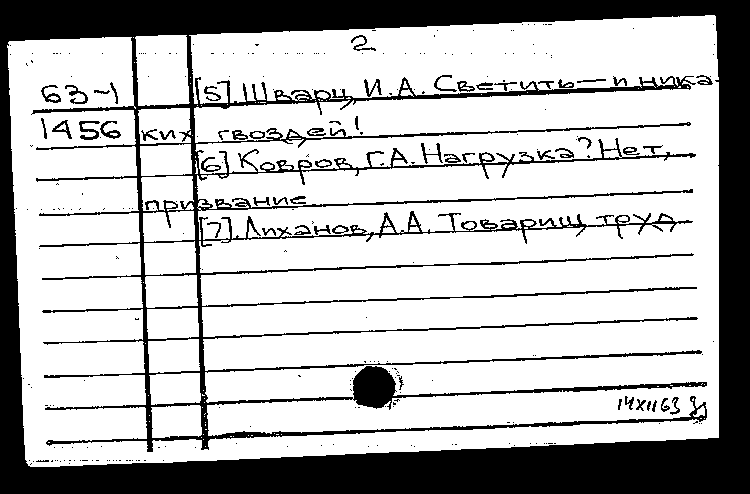 2
63-1 [5]. Шварц, И.А. Светить — и ника-
1456 ких гвоздей!
[6] Ковров, Г.А. Нагрузка? Нет,
призвание
[7]. Лиханов, А.А. Товарищ труд
14 XII 63